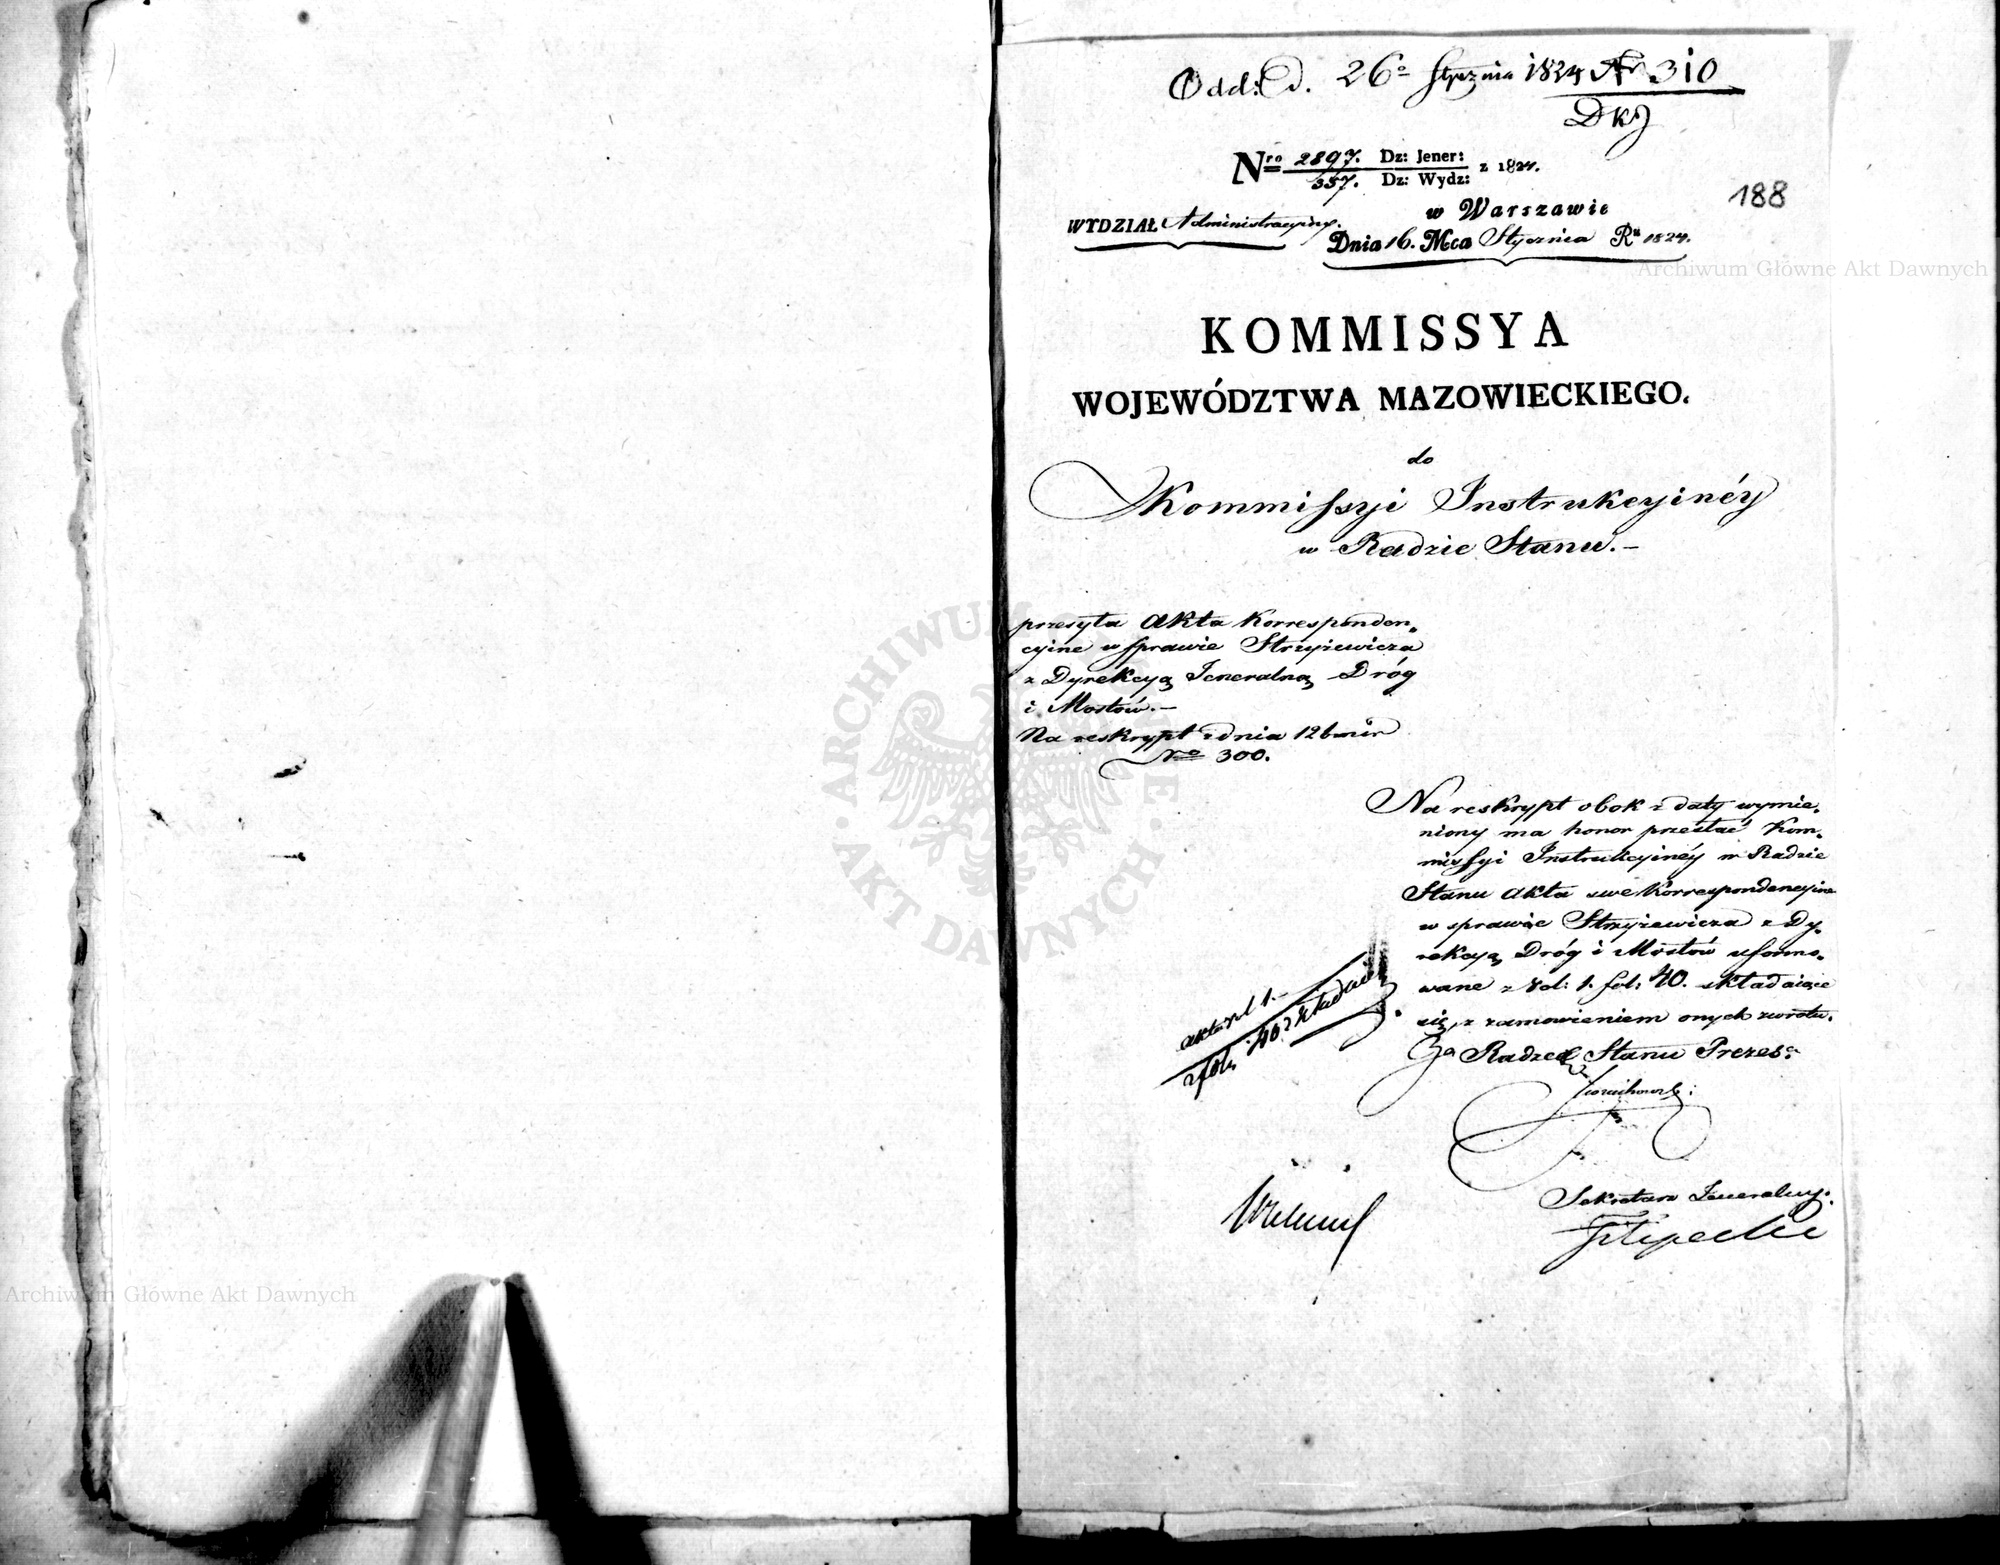 Odd: d. 26° Stycznia 1824 Nr 310
DKJ
Nro 2897. Dz: Jener: z 1824.
357. Dz: Wydz:
188
w Warszawie
WYDZIAŁ Administracyiny.
Dnia 16. Mca Stycznia Ru 1824.
Archiwum Główne Akt Dawnych
KOMMISSYA
WOJEWÓDZTWA MAZOWIECKIEGO.
do
Kommissyi Instrukcyinéy
w Radzie Stanu.–
przesyła Akta Korresponden„
cyine w sprawie Stryżewicza
z Dyrekcyą Jeneralną Dróg
i Mostów.–
Na reskrypt z dnia 12
No 300.
Na reskrypt obok z daty wymie„
niony ma honor przesłać Kom„
missyi Instrukcyinéy w Radzie
Stanu Akta swe Korrespondencyine
w sprawie Stryżewicza z Dy„
rekcyą Dróg i Mostów uformo„
wane z Vol: 1. fol: 40. składaiące
się, z zamówieniem onych zwrotu.
Za Radzcę Stanu Prezesa
akta vol 1.
z fol: 40
Sekretarz Jeneralny.
Filipecki
ARCHIWUM GŁÓWNE
AKT DAWNYCH
Archiwum Główne Akt Dawnych